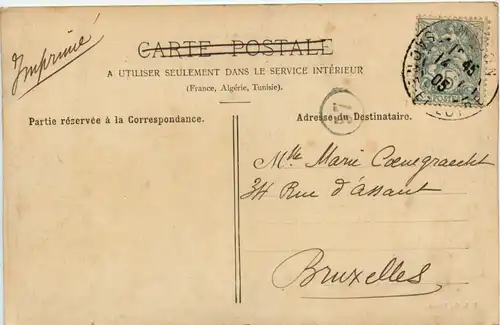 Imprimé
CARTE POSTALE
A UTILISER SEULEMENT DANS LE SERVICE INTÉRIEUR
(France, Algérie, Tunisie).
Partie réservée à la Correspondance.
Adresse du Destinataire.
Mlle Marie Coenegracht
34 Rue d'Assaut
Bruxelles